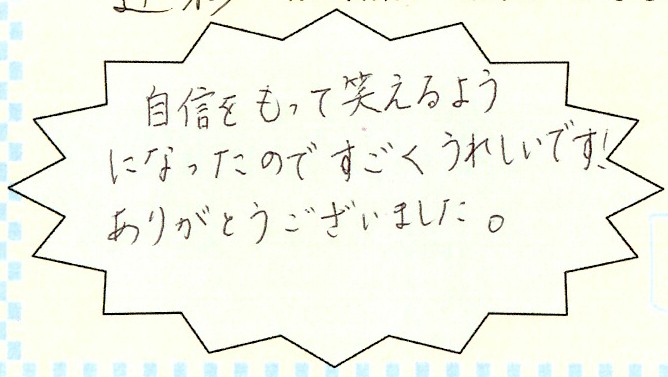 自信をもって笑えるよう
になったのですごくうれしいです!
ありがとうございました。